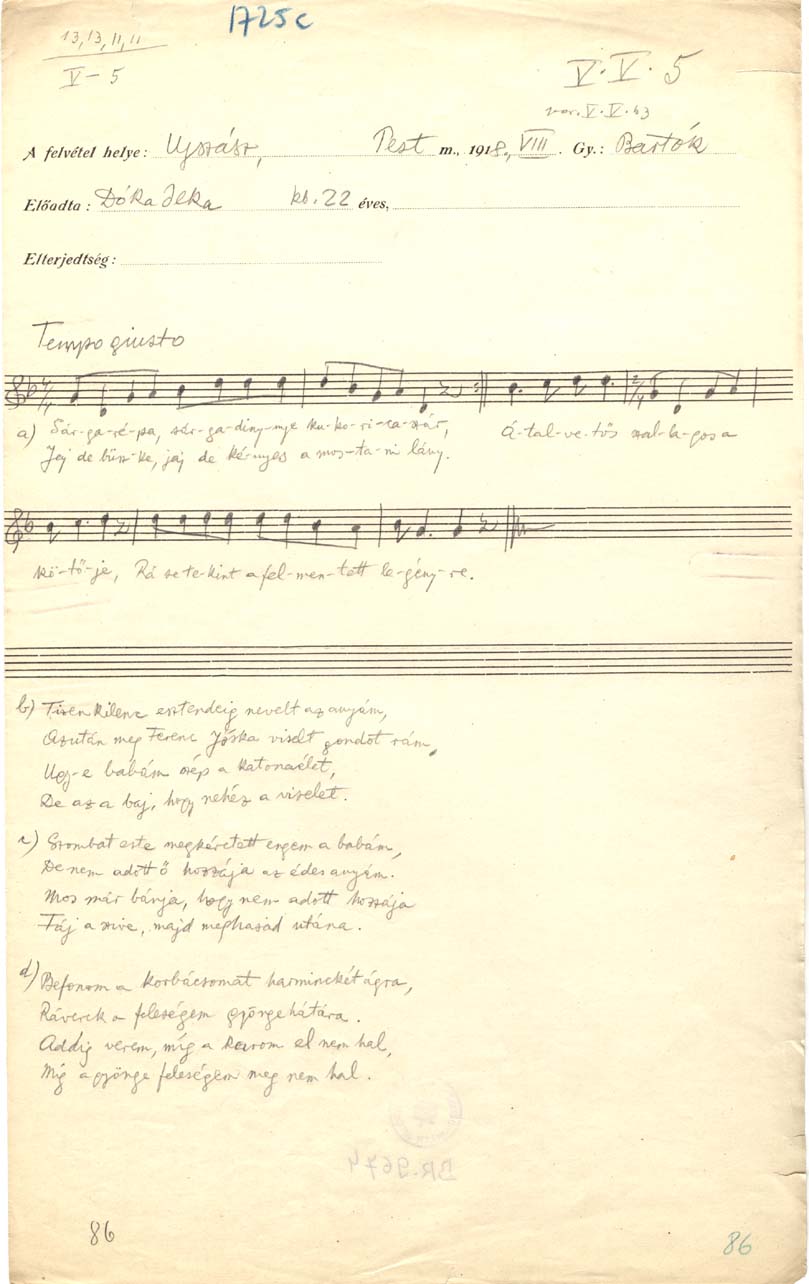 1725c
13, 13, 11, 11
V – 5
V. V. 5
var. V. V. 43
A felvétel helye: Ujszász, Pest m., 1918., VIII. Gy.: Bartók
Előadta: Dóka Ilka kb. 22 éves,
Elterjedtség:
Tempo giusto
a) Sár-ga-ré-pa, sár-ga-diny-nye ku-ko-ri-ca-szár, Á-tal-ve-tős szal-la-gos a
Jaj de büsz-ke, jaj de ké-nyes a mos-ta-ni lány.
kö-tő-je, Rá se te-kint a fel-men-tett le-gény-re.
b) Tizenkilenc esztendeig nevelt az anyám,
Azután meg Ferenc Jóska viselt gondot rám,
Ugy-e babám szép a katonaélet,
De az a baj, hogy nehéz a viselet.
c) Szombat este megkéretett engem a babám,
De nem adott ő hozzája az édes anyám.
Mos már bánja, hogy nem adott hozzája
Fáj a szive, majd meghasad utána.
d) Befonom a korbácsomat harminckét ágra,
Ráverek a feleségem gyönge hátára.
Addig verem, míg a karom el nem hal,
Míg a gyönge feleségem meg nem hal.
BR. 9674
86
86